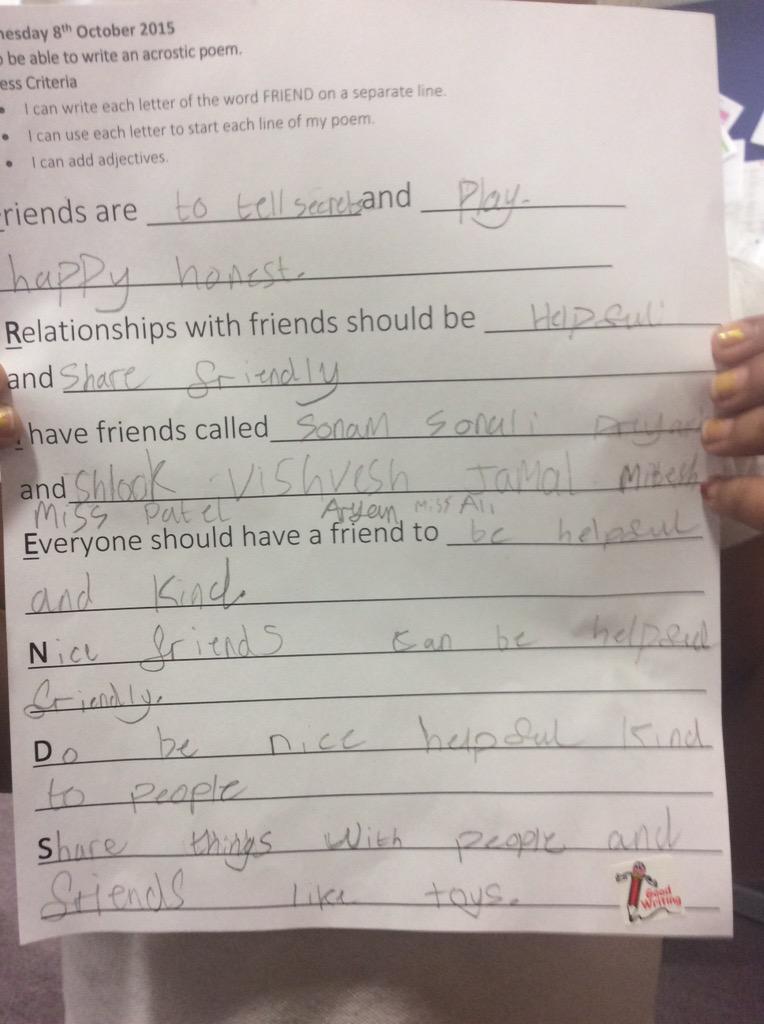 nesday 8th October 2015
o be able to write an acrostic poem.
ess Criteria
• I can write each letter of the word FRIEND on a separate line.
• I can use each letter to start each line of my poem.
• I can add adjectives.
Friends are to tell secrets and Play.
happy honest.
Relationships with friends should be Helpful
and Share friendly
I have friends called Sonam Sonali
and Shlook Vishvesh Jamal Mitesh
Miss Patel Aryan Miss Ali
Everyone should have a friend to be helpful
and Kind.
Nice friends can be helpful
friendly.
Do be nice helpful kind
to people
Share things with people and
friends like toys.
Good
Writing